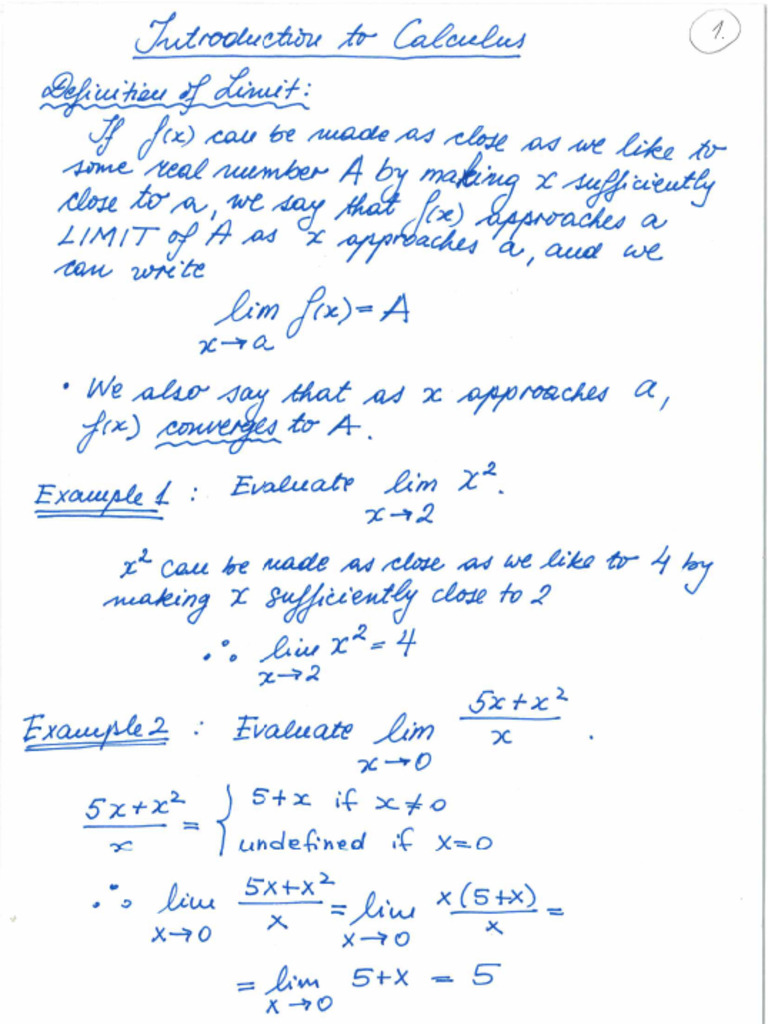 Introduction to Calculus
1.
Definition of Limit:
If f(x) can be made as close as we like to
some real number A by making x sufficiently
close to a, we say that f(x) approaches a
LIMIT of A as x approaches a, and we
can write
lim f(x) = A
x→a
• We also say that as x approaches a,
f(x) converges to A.
Example 1 : Evaluate lim x².
x→2
x² can be made as close as we like to 4 by
making x sufficiently close to 2
∴ lim x² = 4
x→2
Example 2 : Evaluate lim (5x+x²)/x .
x→0
(5x+x²)/x = { 5+x if x≠0
undefined if x=0
∴ lim (5x+x²)/x = lim x(5+x)/x =
x→0 x→0
= lim 5+x = 5
x→0